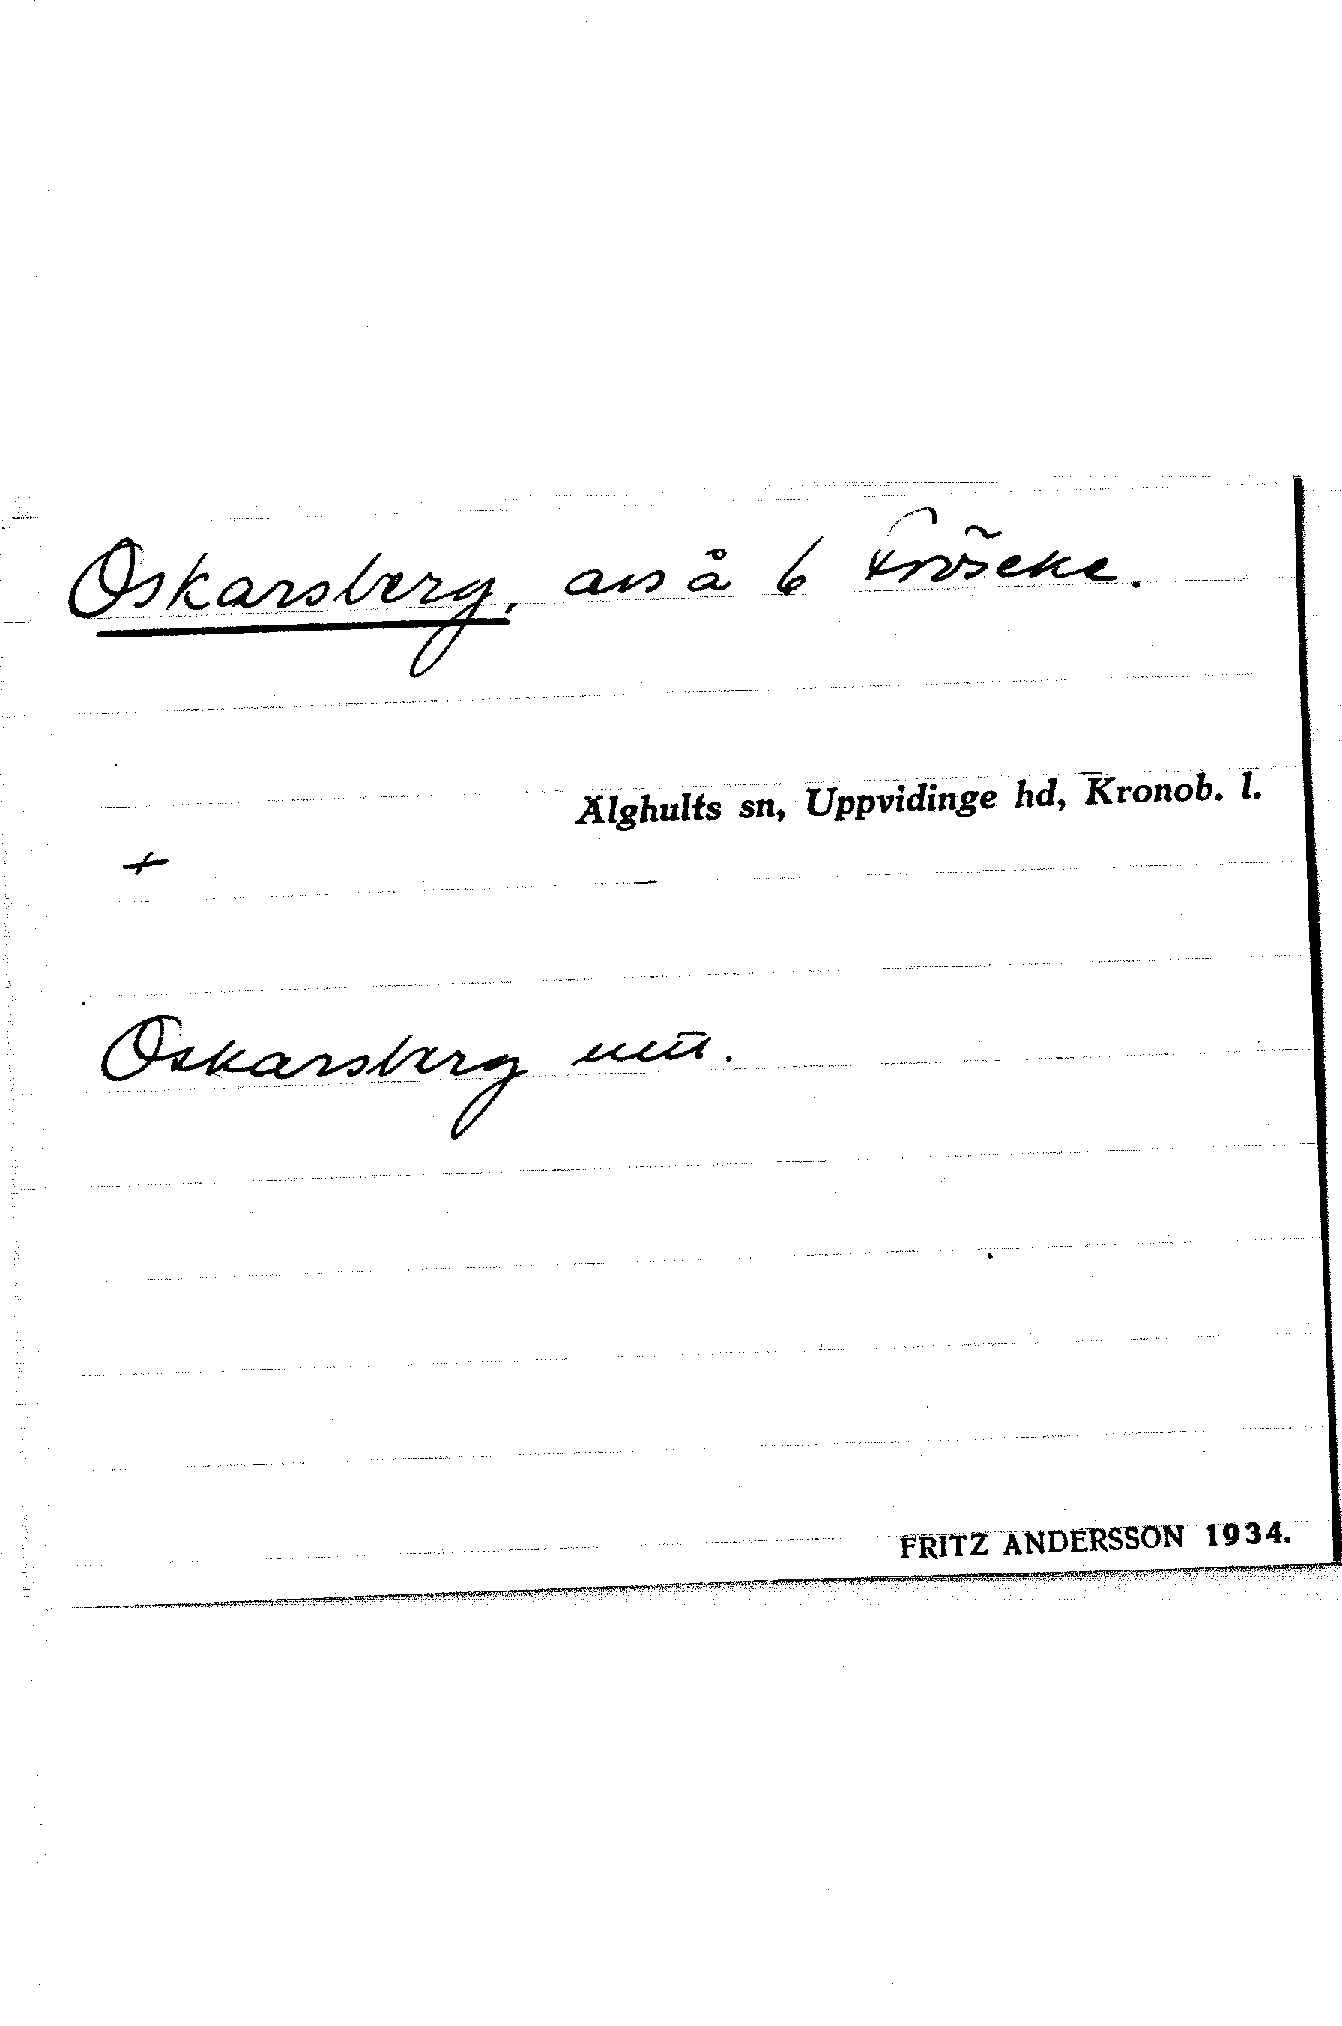 Oskarsberg, avs å 6 Fröseke.
Älghults sn, Uppvidinge hd, Kronob. l.
+
Oskarsberg
FRITZ ANDERSSON 1934.